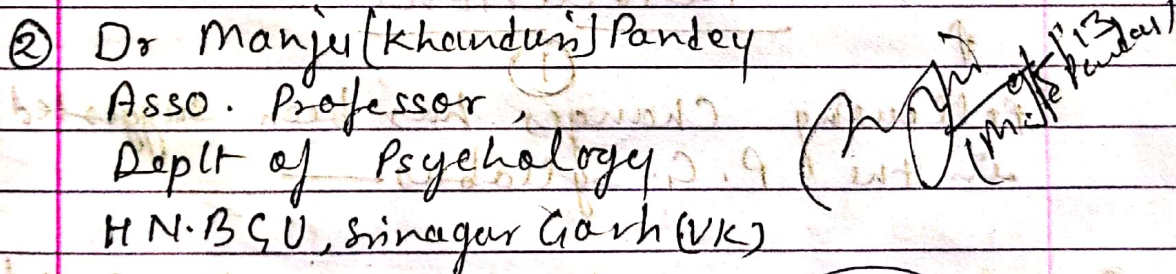 ② Dr Manju (Khanduri) Pandey
Asso. Professor,
Deptt of Psychology
H N.B G U, Srinagar Garh (UK)